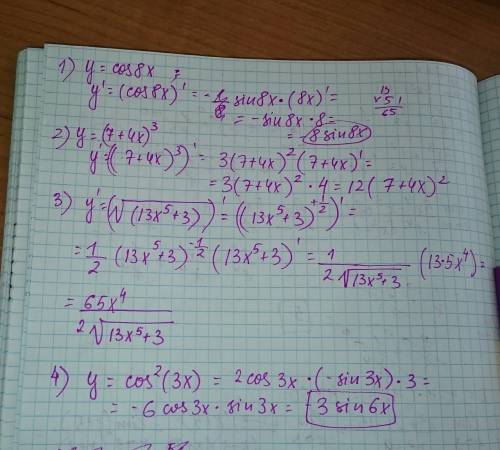 1) y = cos8x ;
y' = (cos8x)' = - sin8x · (8x)' =
= -sin8x · 8 =
= -8 sin8x
13
x 5
65
2) y = (7+4x)³
y' = ((7+4x)³)' = 3(7+4x)² (7+4x)' =
= 3(7+4x)² · 4 = 12(7+4x)²
3) y' = (√(13x⁵+3))' = ((13x⁵+3)^(+1/2))' =
= 1/2 (13x⁵+3)^(-1/2) (13x⁵+3)' = 1/(2√(13x⁵+3)) (13·5x⁴) =
= 65x⁴/(2√(13x⁵+3))
4) y = cos²(3x) = 2cos3x · (-sin3x) · 3 =
= -6 cos3x · sin3x = -3 sin6x